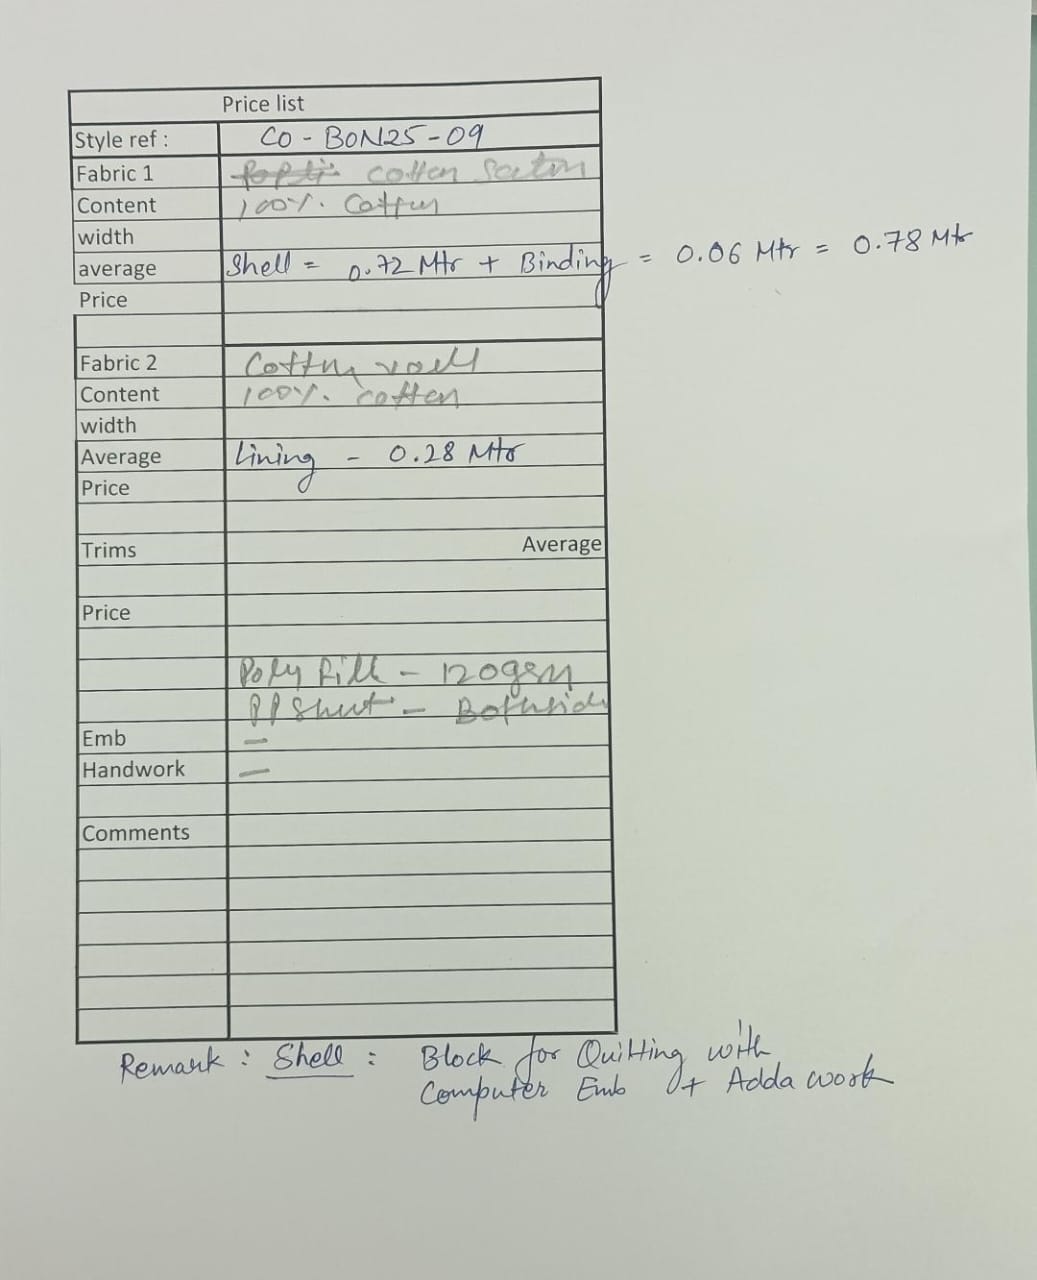 Price list
Style ref : CO - BON25-09
Fabric 1 cotton Satin
Content 100%. Cotton
width
average Shell = 0.72 Mtr + Binding = 0.06 Mtr = 0.78 Mtr
Price
Fabric 2 Cotton voell
Content 100%. cotton
width
Average Lining - 0.28 Mtr
Price
Trims Average
Price
Poly fill - 120gsm
PP Sheet - Bothside
Emb -
Handwork -
Comments
Remark : Shell : Block for Quilting with
Computer Emb + Adda work